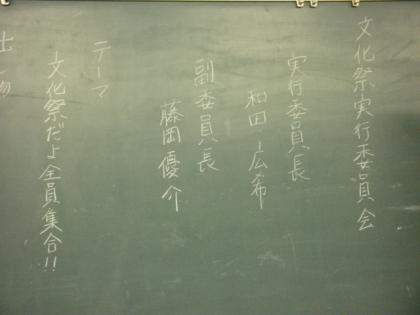 文化祭実行委員会
実行委員長
和田広希
副委員長
藤岡優介
テーマ
文化祭だよ全員集合!!